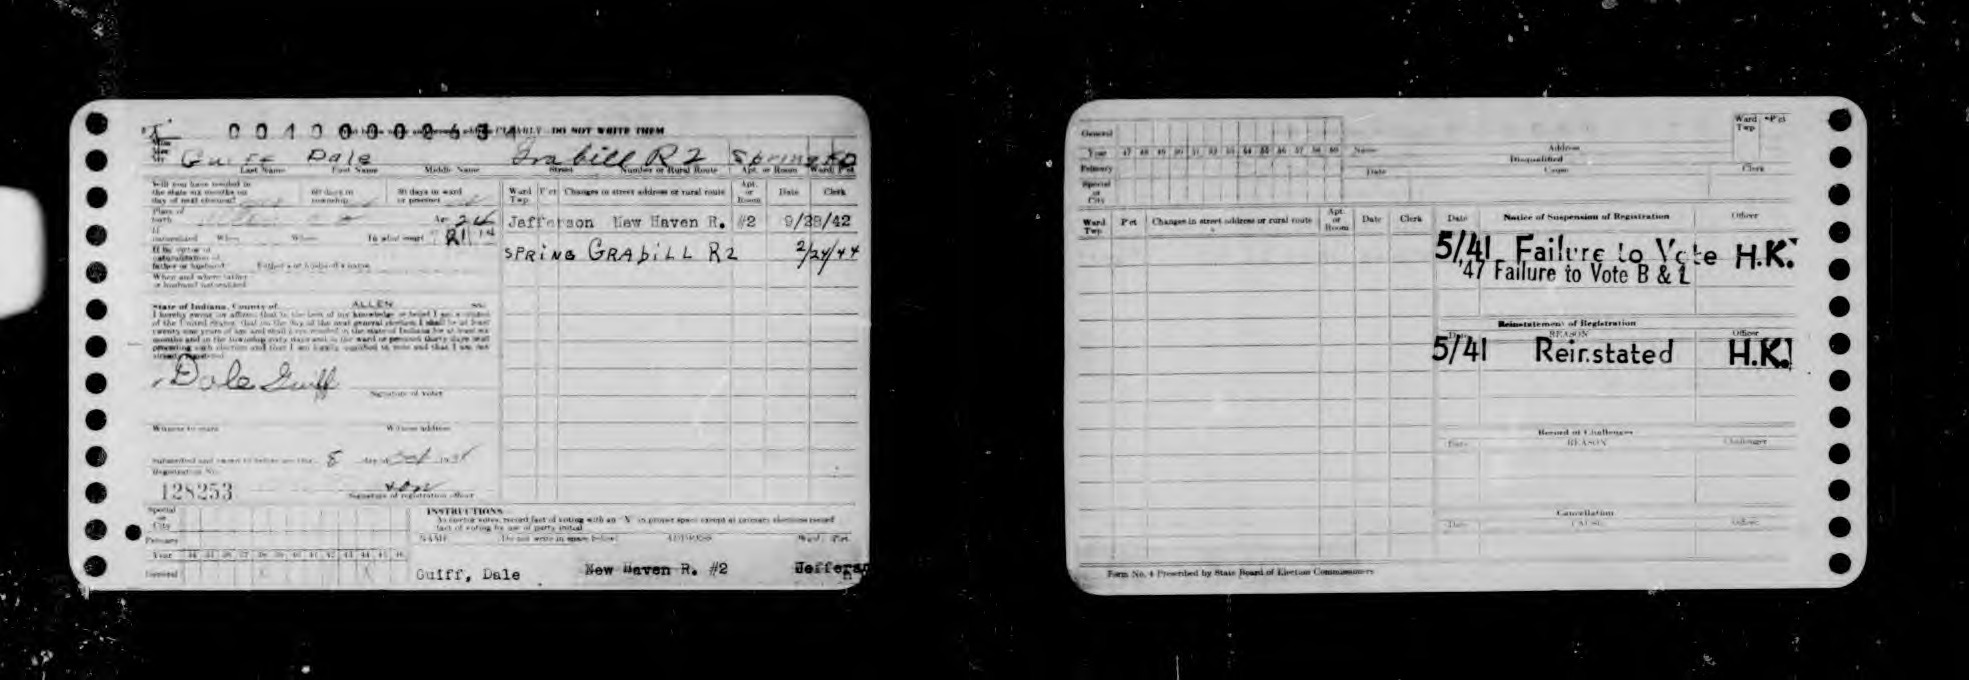 0 0 4 0 0 0 0 0 2 6 3 4
CLEARLY DO NOT WRITE THEM
Guiff Dale Grabill R2 Spring
Last Name First Name Middle Name Street Number or Rural Route Apt. or Room Ward Pct
Will you have resided in
the state six months on
day of next election?
60 days in
township
30 days in ward
or precinct
Ward
Twp
Pct
Changes in street address or rural route
Apt.
or
Room
Date
Clerk
Place of
birth
Age 24
Jefferson New Haven R. #2 9/28/42
If
naturalized When Where In what court
SPRING GRAbiLL R2 2/24/44
If by virtue of
naturalization of
father or husband Father's or husband's name
When and where father
or husband naturalized
State of Indiana, County of ALLEN ss:
I hereby swear (or affirm) that to the best of my knowledge or belief I am a citizen
of the United States, that on the day of the next general election I shall be at least
twenty one years of age and shall have resided in the state of Indiana for at least six
months and in the township sixty days and in the ward or precinct thirty days next
preceding such election and that I am legally qualified to vote and that I am not
Dale Guiff
Signature of voter
Witness to mark Witness address
Subscribed and sworn to before me this 8 day of
Registration No.
128253
Signature of registration officer
Special
or
City
Primary
Year 34 35 36 37 38 39 40 41 42 43 44 45 46
General X X
INSTRUCTIONS
As elector votes, record fact of voting with an "X" in proper space except at primary elections record
fact of voting by use of party initial
NAME (Do not write in space below) ADDRESS Ward Pct.
Guiff, Dale New Haven R. #2 Jefferson
General
Year 47 48 49 50 51 52 53 54 55 56 57 58 59
Primary
Special
or
City
Name Address
Disqualified
Date Cause Clerk
Ward
Twp
Pct
Ward
Twp.
Pct
Changes in street address or rural route
Apt.
or
Room
Date
Clerk
Date Notice of Suspension of Registration Officer
5/41 Failure to Vote H.K.
'47 Failure to Vote B & L
Reinstatement of Registration
Date REASON Officer
5/41 Reinstated H.K.
Record of Challenges
Date REASON Challenger
Cancellation
Date CAUSE Officer
Form No. 4 Prescribed by State Board of Election Commissioners